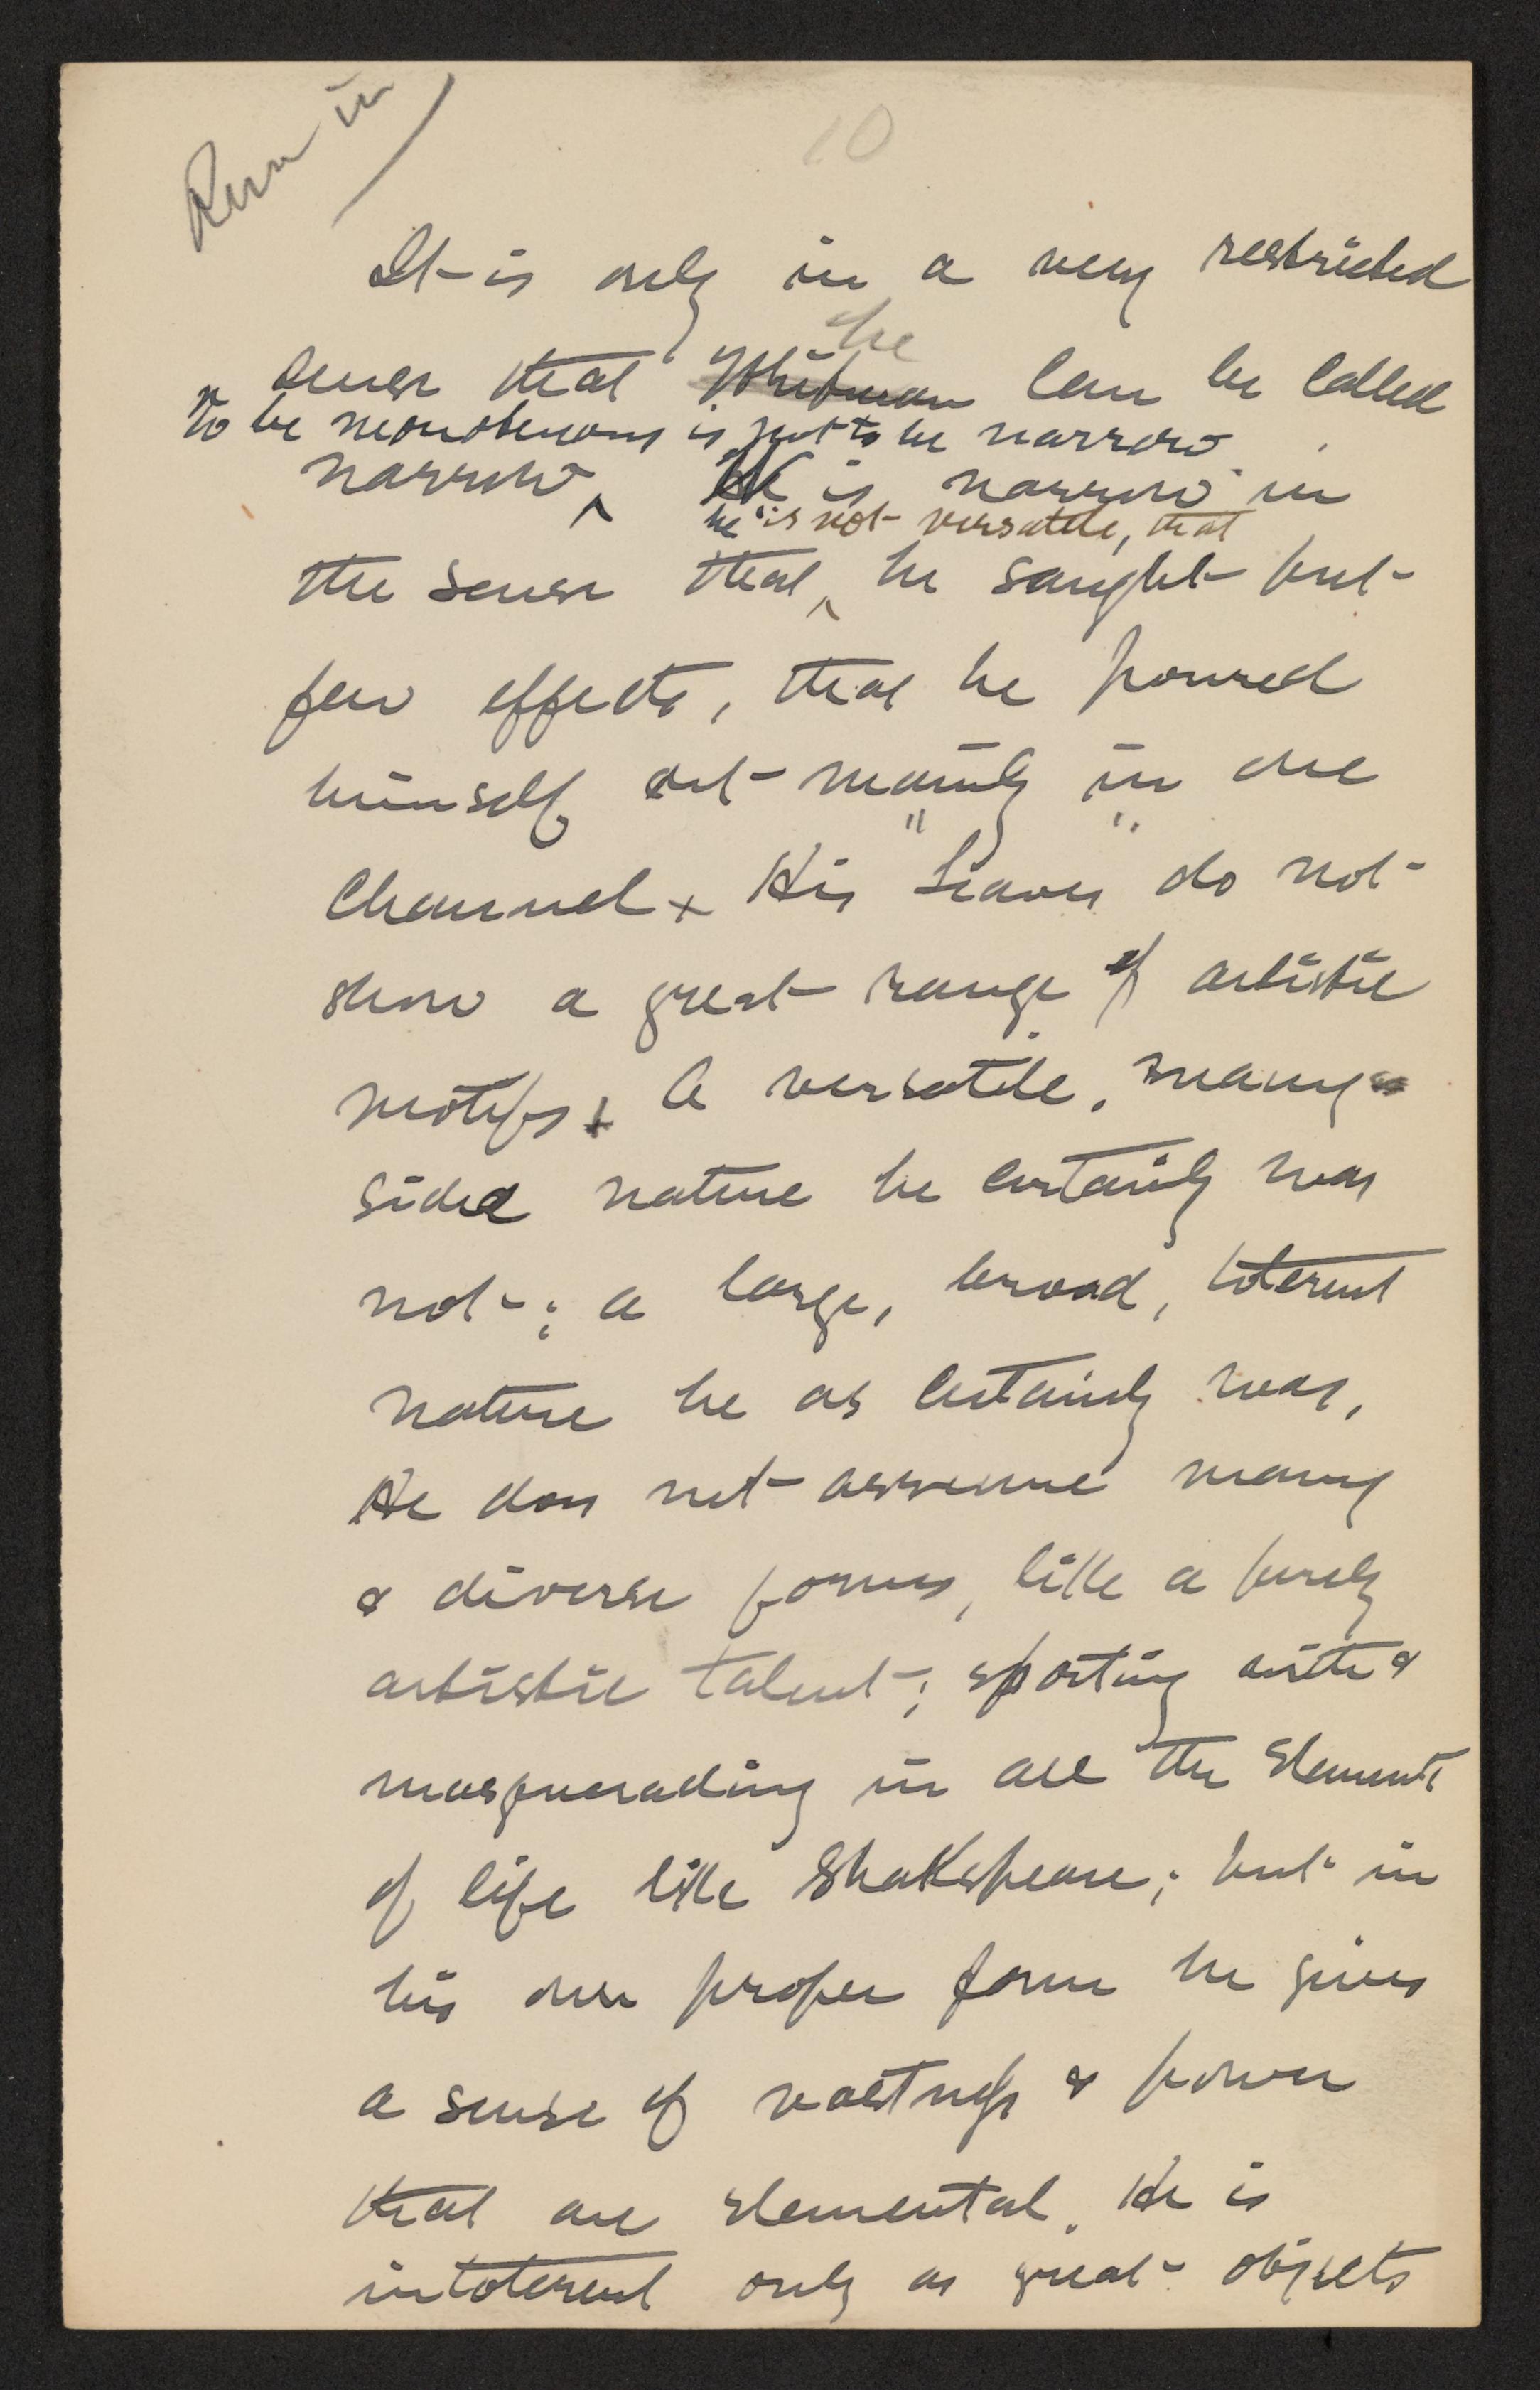 Run in
10
It is only in a very restricted
he
sense that Whitman can be called
To be monotonous is not to be narrow
narrow ^ He is narrow in
he is not versatile, that
the sense that ^ he sought but
few effects, that he poured
himself out mainly in one
Channel x His "Leaves" do not
show a great range of artistic
motifs x A versatile, many-
sided nature he certainly was
not; a large, broad, tolerent
nature he as certainly was,
He does not assume many
& diverse forms, like a purely
artistic talent; sporting with &
masquerading in all the elements
of life like Shakspeare; but in
his own proper form he gives
a sense of vastness & power
that are elemental. He is
intolerent only as great objects